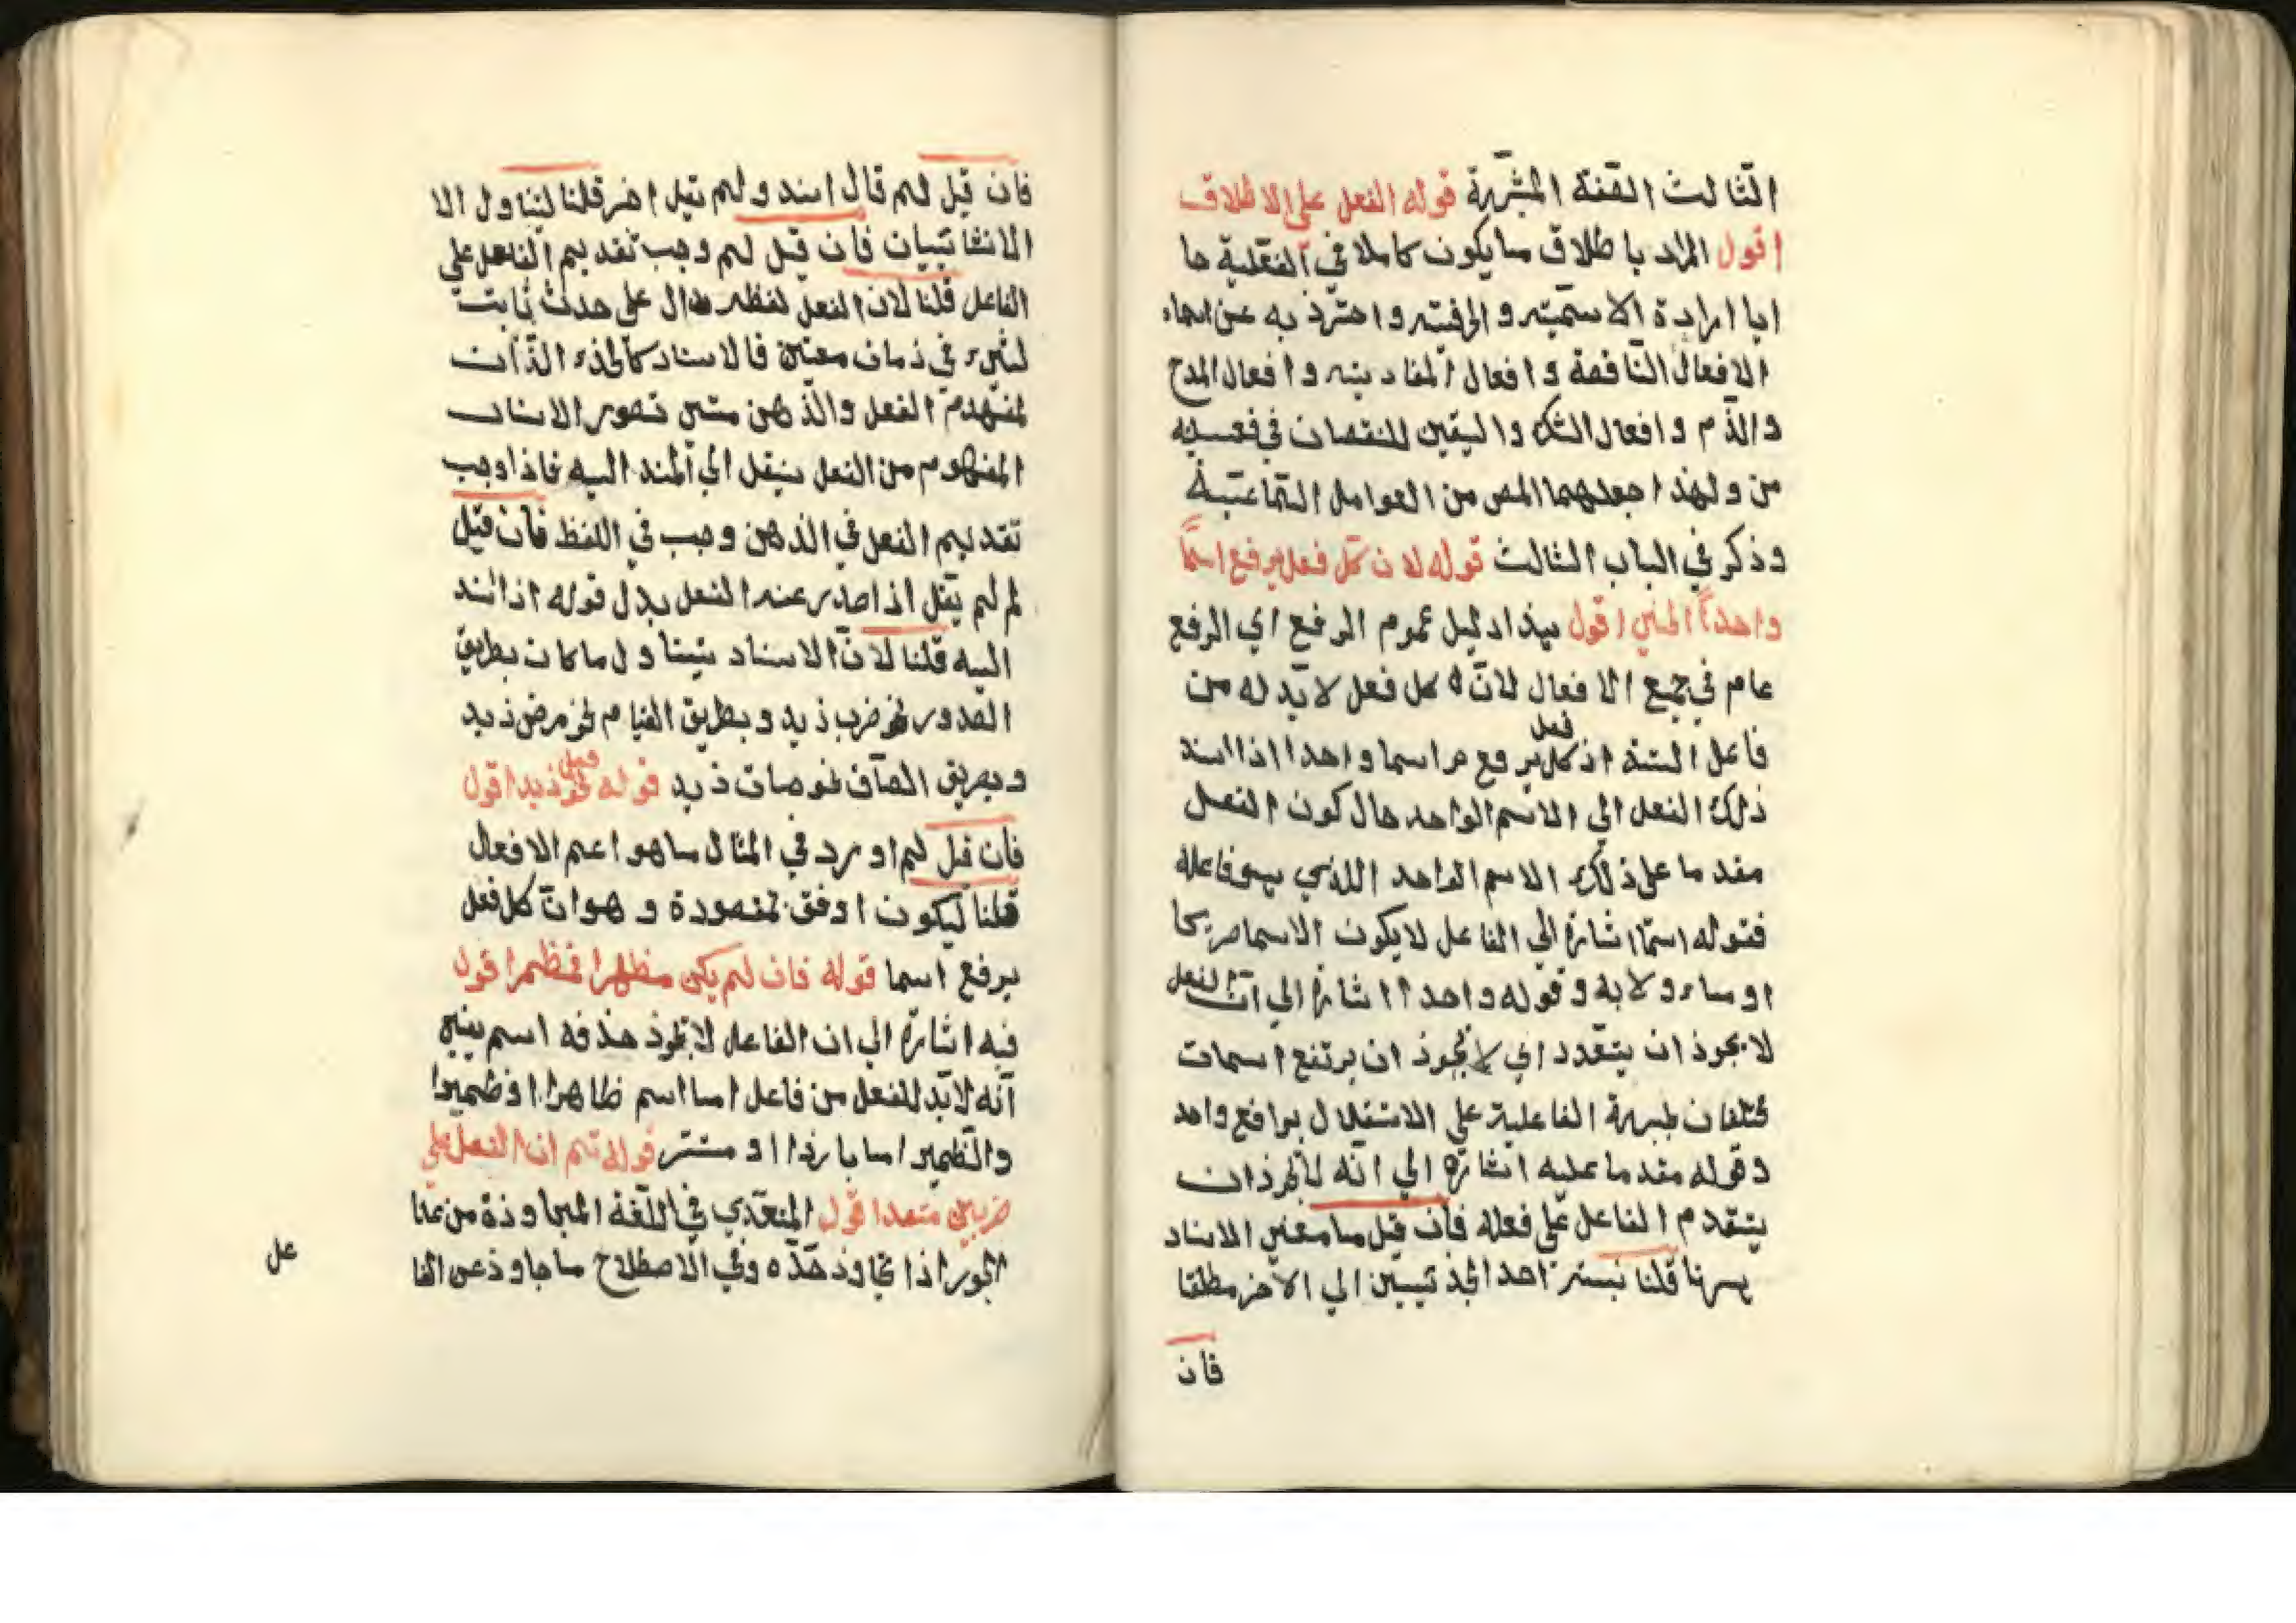 الثالث القنة المشهرة قوله الفعل على الاطلاق
اقول المراد باطلاق ما يكون كاملا في الفعلية حا
ايا ارادة الاسمية والحرفية واحترذ به عن اسماء
الافعال الناقصة وافعال المقاربة وافعال المدح
والذم وافعال الشك واليقين للنقصان في فعسيه
من ولهذا جعلهما المص من العوامل السماعية
وذكر في الباب الثالث قوله لان كل فعل يرفع اسمًا
واحداً الخ اقول هذا دليل عموم الرفع اي الرفع
عام في جميع الافعال لانّه كل فعل لا بدّ له من
فاعل البتة اذ كل فعل يرفع اسما واحدا اذا اسند
ذلك الفعل الي الاسم الواحد حال كون الفعل
مقدما على ذلك الاسم الواحد اللذي هو فاعله
فقوله اسمًا اشارة الي الفاعل لا يكون الاسما صريحا
او ماءولا به وقوله واحدا اشارة الي ان الفعل
لا يجوذ ان يتعدد اي لا يجوذ ان يرتفع اسمان
مختلفان بجهة الفاعلية على الاستقلال برافع واحد
وقوله مقدما عليه اشارة الي انّه لا يجوذ ان
يتقدم الفاعل على فعله فان قيل ما معني الاسناد
ههنا قلنا نسبة احد الجذئيين الي الاخر مطلقا
فان
فان قيل لم قال اسند ولم يقل اخر قلنا لتناول الا
الانشائيات فان قيل لم وجب تقديم الفعل على
الفاعل قلنا لان الفعل لفظ دال على حدث ثابت
لشيء في ذمان معين فالاسناد كالجذء الذّان
لمفهوم الفعل والذهن متي تصور الاسناد
المفهوم من الفعل ينقل الي المسند اليه فاذا وجب
تقديم الفعل في الذهن وجب في اللفظ فان قيل
لم لم يقل اذا صدر عنه الفعل بدل قوله اذا اسند
اليه قلنا لانّ الاسناد يتناول ما كان بطريق
الصدور نحو ضرب ذيد وبطريق القيام نحو مرض ذيد
وبطريق الصاف نحو مات ذيد قوله نحو فعل ذيد اقول
فان قيل لم اورد في المثال ما هو اعم الافعال
قلنا ليكون اوفق بمقصوده وهو انّ كل فعل
يرفع اسما قوله فان لم يكن مظهرا فمظمرا قول
فيه اشارة الي ان الفاعل لا يجوذ حذفه اسم يعني
انّه لا بدّ للفعل من فاعل اما اسم ظاهرا او ظميرا
والظمير اما بارذا او مستتر قوله ثم ان الفعل على
ضربين متعد اقول المتعدّي في اللّغة المجاوذة من عنا
الجور اذا تجاوذ حدّه وفي الاصطلاح ما جاوذ عن الفا
عل